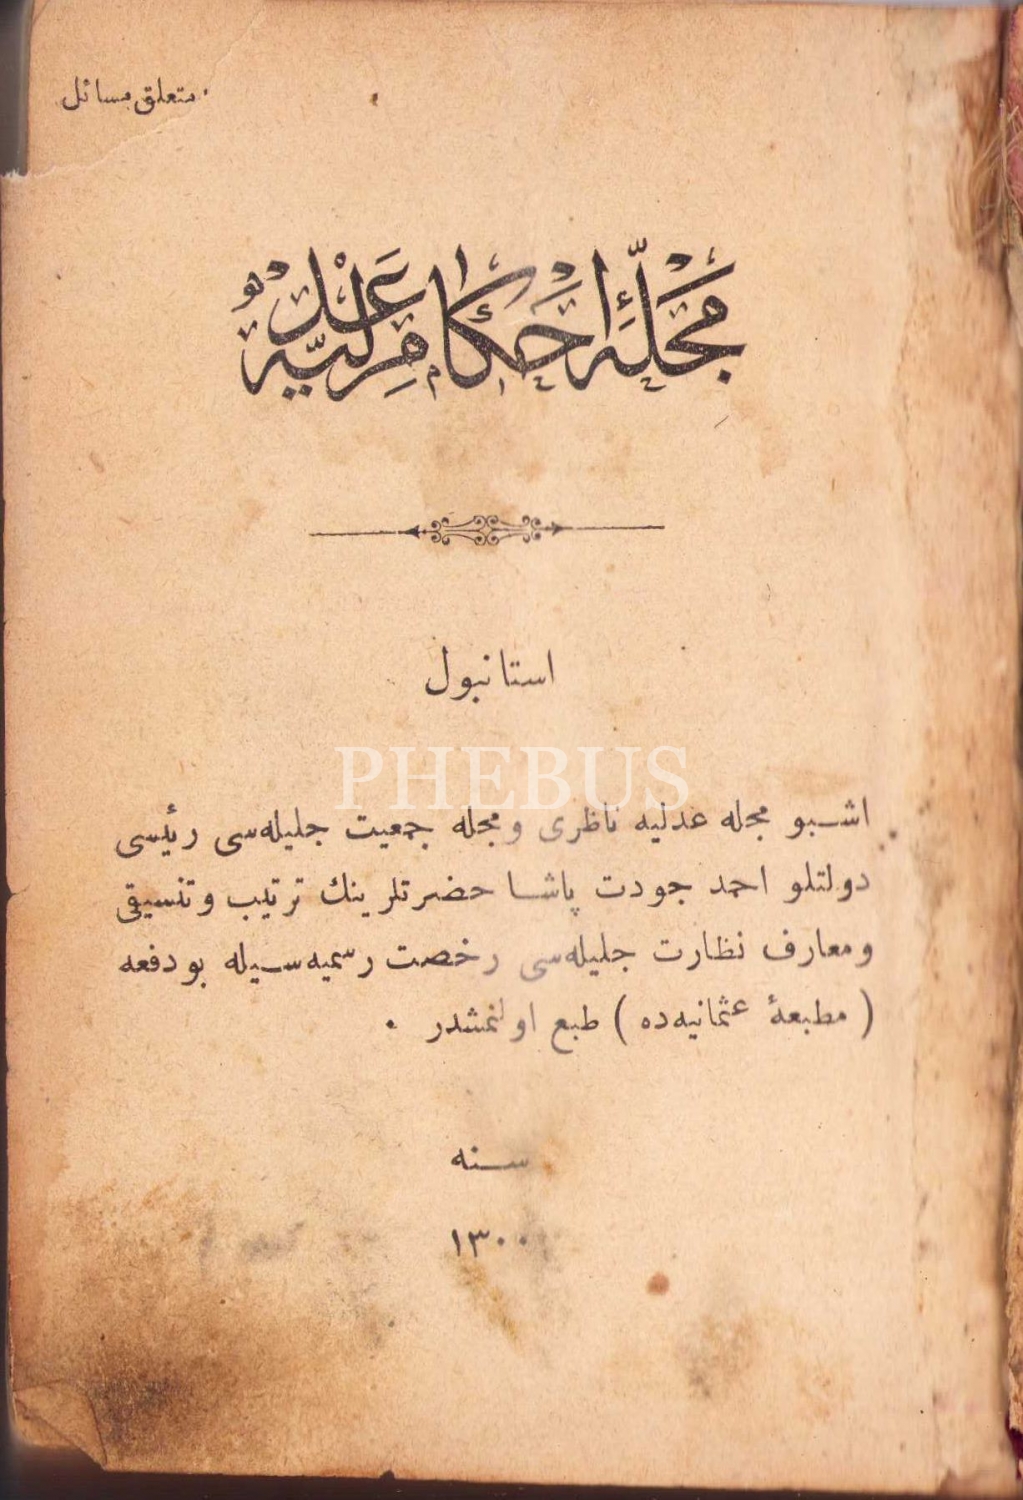 متعلق مسائل
مجلّۀ احكام عدليّه
استانبول
PHEBUS
اشبو مجله عدليه ناظرى ومجله جمعيت جليله‌سى رئيسى
دولتلو احمد جودت پاشا حضرتلرينك ترتيب وتنسيقى
ومعارف نظارت جليله‌سى رخصت رسميه‌سيله بودفعه
( مطبعۀ عثمانيه‌ده ) طبع اولنمشدر .
سنه
١٣٠٠